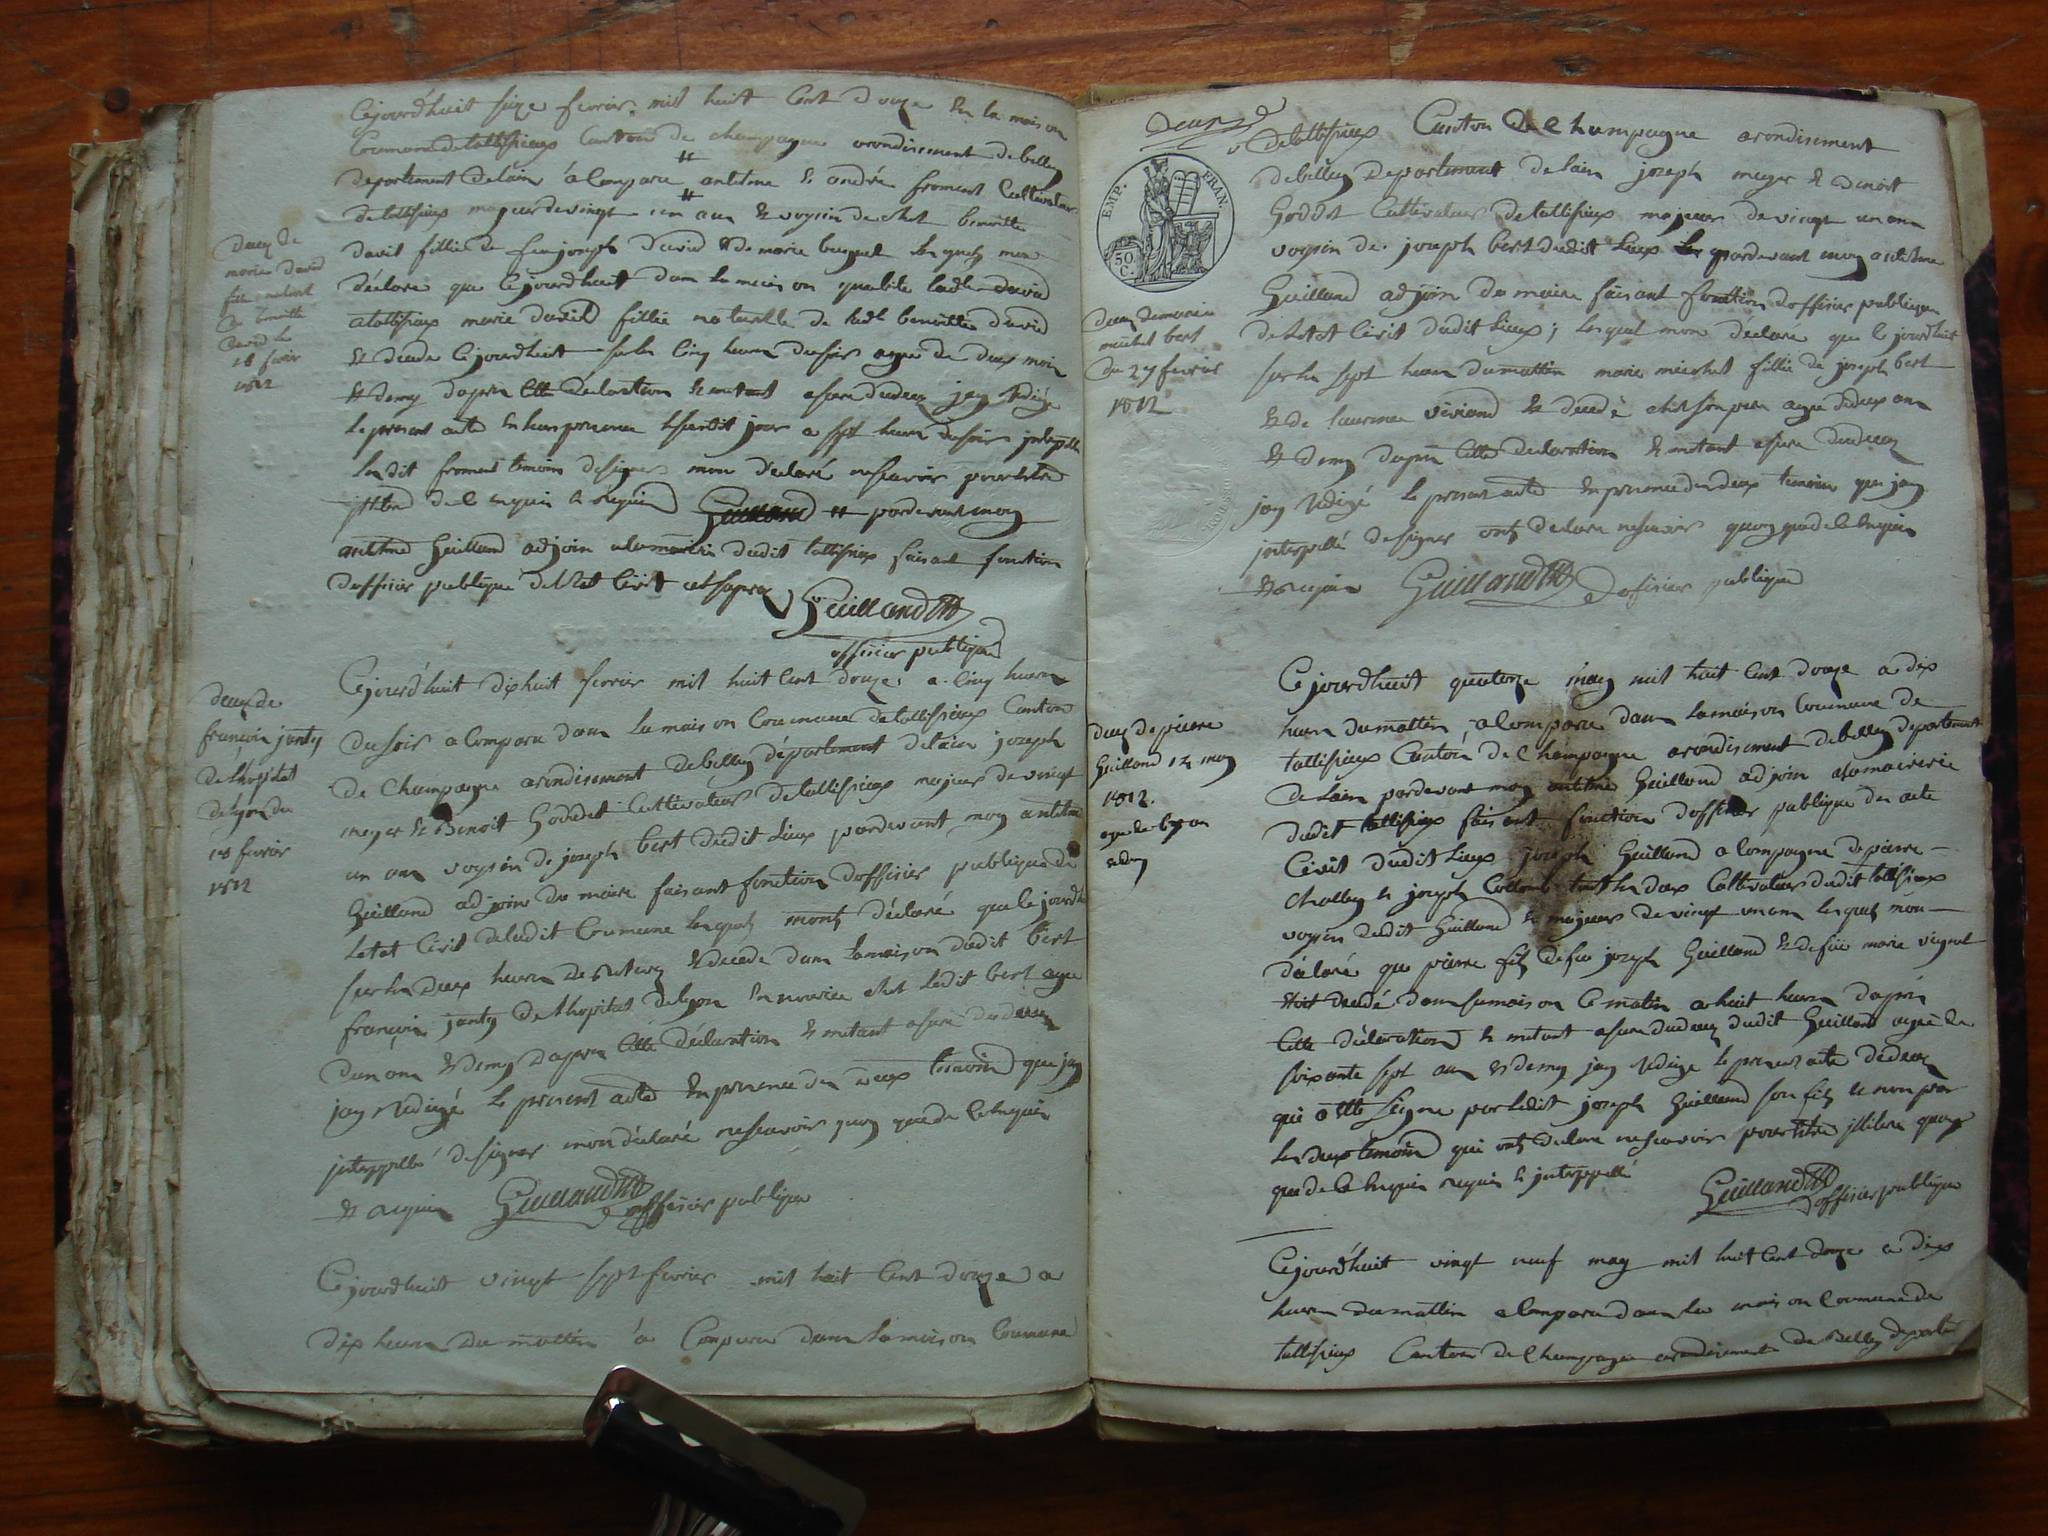 Cejourdhuit seize fevrier mil huit Cent douze En la maison
Commune detallisieux Canton de champagne arondisement de belley
departement Delain à Comparu antelme & andré froment Cultivateur
detallisieux majeur de vingt un an & voysin de chet benoitte
david fillie de feu joseph David & de marie buguet Lesquels mon
déclaré que Cejourdhuit dans la maison quabite ladte david
atallisieux marie david fillie naturelle de ladte benoitte david
& decede Cejourdhuit sur les Cinq heures du soir agee de deux mois
& demy daprés Cette declaration & metant asure dudeces jay Redigé
Le present acte En leur presence & ledit jour a sept heures du soir
Les dit froment temoins designer mon déclaré ne scavoir pour être
illitere de Ce Enquis & Requis Guilland # pardevant moy
antelme Guilland adjoin alamairie dudit tallisieux faisant fonction
dofficier publique de letat Civil
Guilland
officier publique
deces de
marie david
fille naturel
de benoitte
david le
16 fevrier
1812
Cejourdhuit dixhuit fevrier mil huit Cent douze a Cinq heures
du soir a Comparu dans la maison Commune detallisieux Canton
de Champagne arondisement debelley département delain jozeph
meyer & Benoit Goddet Cultivateurs detallisieux majeur de vingt
un ans voysin de jozeph bert dudit Lieux pardevant moy antelme
Guilland adjoin du maire faisant fonction dofficier publique de
Letat Civil deladit Commune Lesquels mont déclaré que Cejourdhuit
sur les deux heures & decede dans lamaison dudit bert
françois janty de lhopital de lyon En nourice chet Ledit bert agee
dun ans & demy daprés Cette déclaration & metant asure dudeces
jay Redigé Le present acte En presence des deux temoins que jay
interppellé designer mon déclaré ne scavoir quoy que de Ce Enquis
& requis Guilland officier publique
deces de
françois janty
de lhopital
de lyon du
18 fevrier
1812
Cejourdhuit vingt sept fevrier mil huit Cent douze a
dix heures du mattin à Comparu dans la maison Commune
Detallisieux Canton de Champagne arondisement
debelley Departement de lain jozeph meyer & Benoit
Goddet Cultivateurs detallisieux majeurs de vingt un ans
voysin de joseph bert dudit Lieux pardevant moy antelme
Guilland adjoin du maire faisant fonction dofficier publique
de letat Civil dudit Lieux, lesquel mon déclaré que Cejourdhuit
sur les sept heures du mattin marie meichet fillie de joseph bert
& de laurence viviand & decedé chet son pere agee de deux ans
& demy daprés Cette declaration & metant asure dudeces
jay Redigé Le present acte En presence des deux temoins que jay
interpellé designer onts declare ne scavoir quoy que de Ce Enquis
& requis Guilland officier publique
EMP. FRAN.
50 C.
deces demarie
meichet bert
du 27 fevrier
1812
Cejourdhuit quatorze may mil huit Cent douze a dix
heures du mattin a Comparu dans lamaison Commune de
tallisieux Canton de Champagne arondisement debelley departement
de Lain pardevant moy antelme Guilland adjoin alamairerie
dudit tallisieux faisant fonction dofficier publique des acte
Civil dudit Lieux joseph Guilland a Compagne de pierre
Challey & joseph Collomb tout les deux Cultivateurs dudit tallisieux
voysin dudit Guilland & majeurs de vingt un ans lesquels mon
déclaré que pierre fils defeu jozeph Guilland & defeue marie vugnet
Etoit decedé dans samaison Ce matin a huit heures daprés
Cette déclaration & metant asure dudeces dudit Guilland agée de
soixante sept ans & demy jay Redige Le present acte de deces
qui a ette signe par Ledit jozeph Guilland son fils & non par
Les deux temoins qui onts declare ne scavoir pour être illitere quoy
que de Ce Enquis requis & interppellé
Guilland officier publique
deces de pierre
Guilland 14 may
1812.
agee de 67 an
& demy
Cejourdhuit vingt neuf may mil huit Cent douze a dix
heures du mattin a Comparu dans la maison Commune de
tallisieux Canton de Champagne arondisement de Belley departe